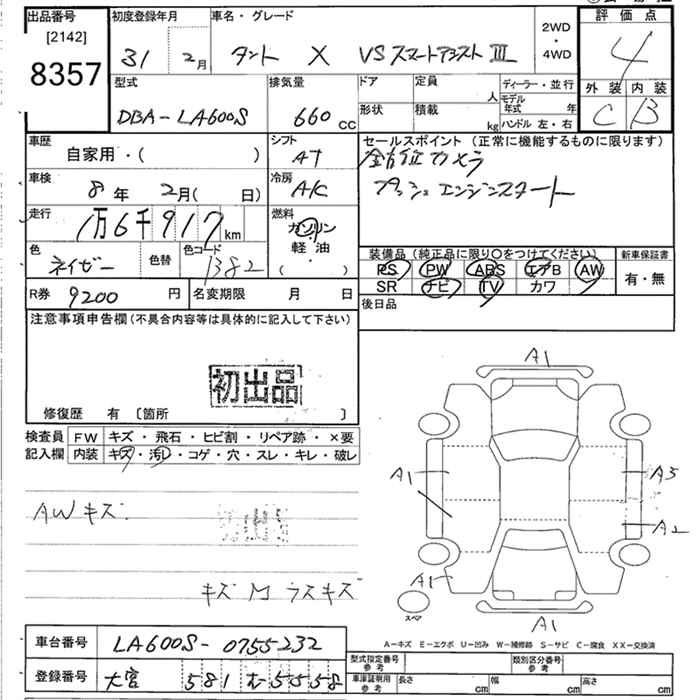 出品番号 [2142] 8357
初度登録年月 31 2月
車名・グレード タント X VSスマートアシストⅢ
2WD・4WD
評価点 4
外装 内装
C B
型式 DBA-LA600S
排気量 660 CC
ドア 定員 人
形状 積載 kg
ディーラー・並行
モデル年式 年
ハンドル 左・右
車歴 自家用・( )
シフト AT
セールスポイント (正常に機能するものに限ります)
全方位カメラ
プッシュエンジンスタート
車検 8年 2月( 日)
冷房 A/C
走行 1万6千917km
燃料 ガソリン 軽油 ( ・ )
色 ネイビー 色替 色コード 1382
装備品 (純正品に限り○をつけてください) 新車保証書
PS PW ABS エアB AW 有・無
SR ナビ TV カワ
R券 9200 円 名変期限 月 日
後日品
注意事項申告欄 (不具合内容等は具体的に記入して下さい)
初出品
修復歴 有 〔箇所 〕
検査員 FW キズ・飛石・ヒビ割・リペア跡・×要
記入欄 内装 キズ・汚レ・コゲ・穴・スレ・キレ・破レ
AWキズ
キズM ラスキズ
A1
A1
A3
A2
A1
A1
スペア
A-キズ E-エクボ U-凹み W-補修跡 S-サビ C-腐食 XX-交換済
車台番号 LA600S-0755232
登録番号 大宮 581 む5558
型式指定番号 参考 類別区分番号 参考
車庫証明用 参考 長さ cm 幅 cm 高さ cm